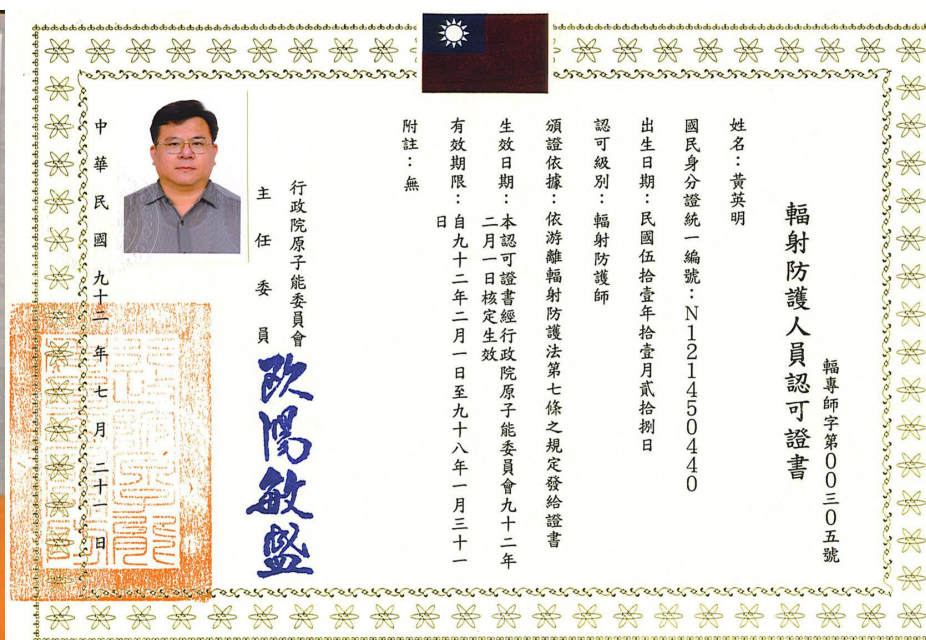 輻專師字第00三0五號
輻射防護人員認可證書
姓名：黃英明
國民身分證統一編號：N121450440
出生日期：民國伍拾壹年拾壹月貳拾捌日
認可級別：輻射防護師
頒證依據：依游離輻射防護法第七條之規定發給證書
生效日期：本認可證書經行政院原子能委員會九十二年
二月一日核定生效
有效期限：自九十二年二月一日至九十八年一月三十一
日
附註：無
行政院原子能委員會
主任委員
歐陽敏盛
中華民國九十二年七月二十一日